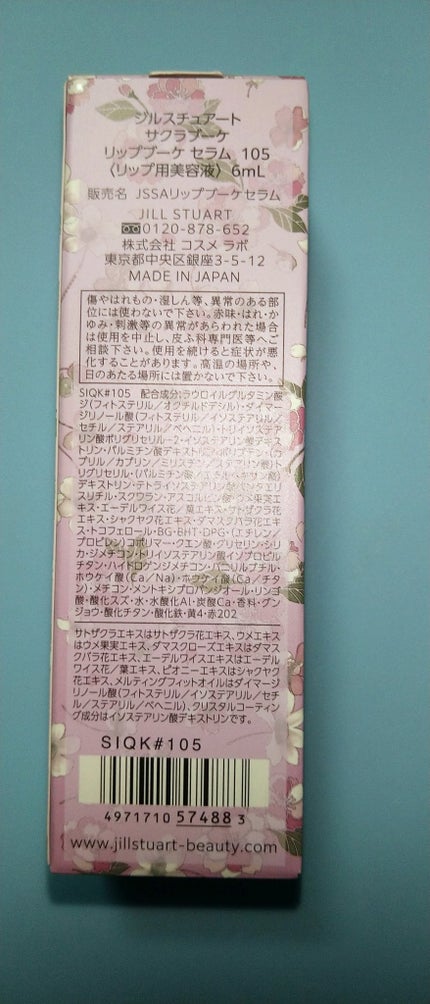 ジルスチュアート
サクラブーケ
リップブーケ セラム 105
〈リップ用美容液〉 6mL
販売名 JSSAリップブーケセラム
JILL STUART
0120-878-652
株式会社 コスメ ラボ
東京都中央区銀座3-5-12
MADE IN JAPAN
傷やはれもの・湿しん等、異常のある部
位には使わないで下さい。赤味・はれ・か
ゆみ・刺激等の異常があらわれた場合
は使用を中止し、皮ふ科専門医等へご
相談下さい。使用を続けると症状が悪
化することがあります。高温の場所や、
日のあたる場所には置かないで下さい。
SIQK#105 配合成分:ラウロイルグルタミン酸
ジ(フィトステリル/オクチルドデシル)・ダイマー
ジリノール酸(フィトステリル/イソステアリル/
セチル/ステアリル/ベヘニル)・トリイソステア
リン酸ポリグリセリル-2・イソステアリン酸デキス
トリン・パルミチン酸デキストリン・ポリブテン・(カ
プリル/カプリン/ミリスチン/ステアリン酸)ト
リグリセリル・(パルミチン酸/エチルヘキサン酸)
デキストリン・テトライソステアリン酸ペンタエリ
スリチル・スクワラン・アスコルビン酸・ウメ果実エ
キス・エーデルワイス花/葉エキス・サトザクラ花
エキス・シャクヤク花エキス・ダマスクバラ花エキ
ス・トコフェロール・BG・BHT・DPG・(エチレン/
プロピレン)コポリマー・クエン酸・グリセリン・シリ
カ・ジメチコン・トリイソステアリン酸イソプロピル
チタン・ハイドロゲンジメチコン・バニリルブチル・
ホウケイ酸(Ca/Na)・ホウケイ酸(Ca/チタ
ン)・メチコン・メントキシプロパンジオール・リンゴ
酸・酸化スズ・水・水酸化Al・炭酸Ca・香料・グン
ジョウ・酸化チタン・酸化鉄・黄4・赤202
サトザクラエキスはサトザクラ花エキス、ウメエキス
はウメ果実エキス、ダマスクローズエキスはダマス
クバラ花エキス、エーデルワイスエキスはエーデル
ワイス花/葉エキス、ピオニーエキスはシャクヤク
花エキス、メルティングフィットオイルはダイマージ
リノール酸(フィトステリル/イソステアリル/セチ
ル/ステアリル/ベヘニル)、クリスタルコーティン
グ成分はイソステアリン酸デキストリンです。
SIQK#105
4971710 57488 3
www.jillstuart-beauty.com